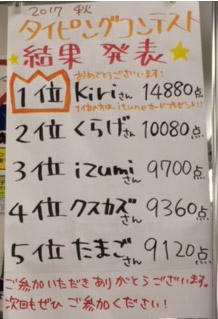 2017 秋
タイピングコンテスト
★結果 発表★
おめでとうございます!
1位 Kiriさん 14880点
1位の方は ituneカードプレゼント!!
2位 くらげさん 10080点
3位 izumiさん 9700点
4位 クスカズさん 9360点
5位 たまごさん 9120点
ご参加いただきありがとうございます。
次回もぜひご参加ください!